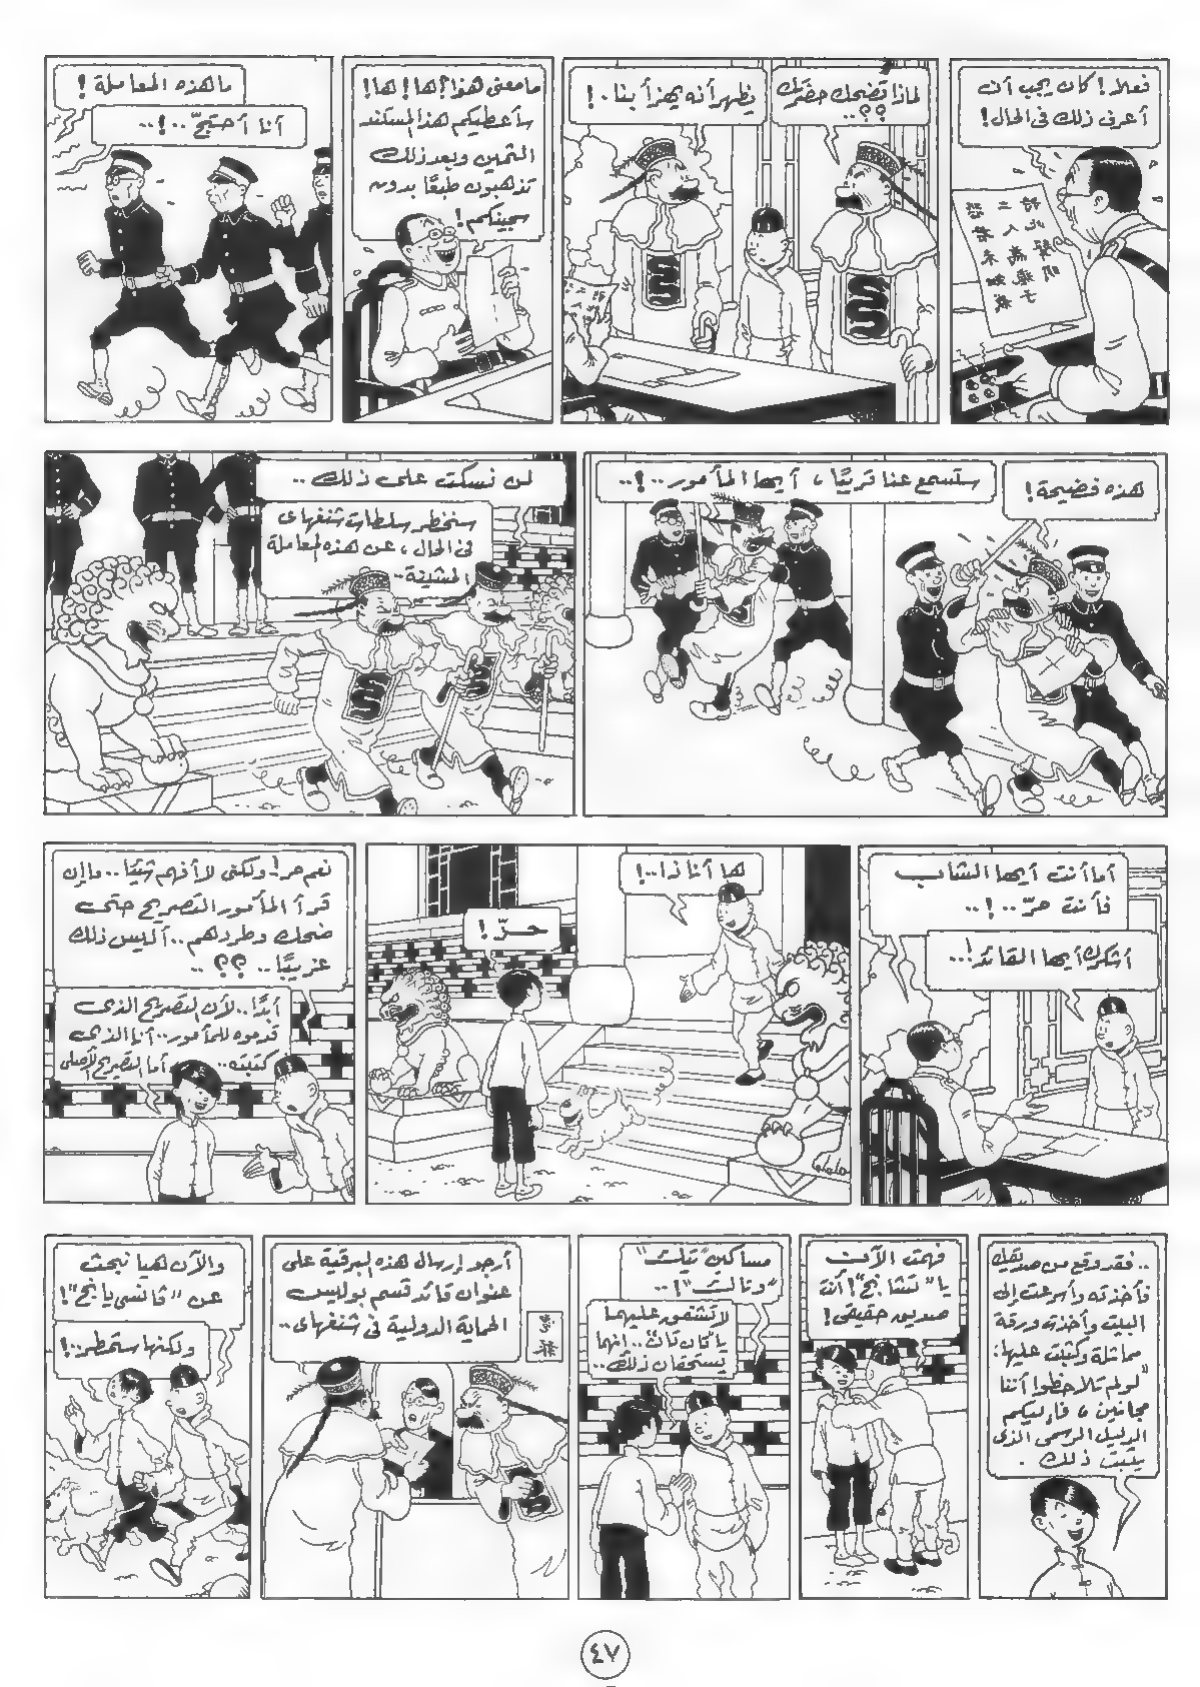 فعلاً! كان يجب أن
أعرف ذلك فى الحال!
لماذا تضحك حضرتك
؟؟..
يظهر أنه يهزأ بنا.!
ما معنى هذا؟ ها! ها!
سأعطيكم هذا المستند
الثمين وبعد ذلك
تذهبون طبعًا بدون
سجينكم!
ما هذه المعاملة!
أنا أحتجّ..!..
هذه فضيحة!
ستسمع عنا قريبًا، أيها المأمور..!..
لن نسكت على ذلك..
سنخطر سلطات شنغهاى
فى الحال، عن هذه المعاملة
المشينة..
أما أنت أيها الشاب
فأنت حرّ..!..
أشكرك أيها القائد!..
ها أنا ذا..!
حرّ!
نعم حر! ولكنى لا أفهم شيئًا.. ما إن
قرأ المأمور التصريح حتى
ضحك وطردهم.. أليس ذلك
غريبًا.. ؟؟..
أبدًا.. لأن التصريح الذى
قدموه للمأمور.. أنا الذى
كتبته.. أما التصريح الأصلى
.. فقد وقع من صديقيك
فأخذته وأسرعت إلى
البيت وأخذت ورقة
مماثلة وكتبت عليها:
"لو لم تلاحظوا أننا
مجانين، فإليكم
الدليل الرسمى الذى
يثبت ذلك.
فهمت الآن
يا "تشانج"! أنت
صديق حقيقى!
مساكين "تيك"
و"تاك"!..
لا تشفق عليهما
يا "تان تان".. إنهما
يستحقان ذلك..
أرجو إرسال هذه البرقية على
عنوان قائد قسم بوليس
الحماية الدولية فى شنغهاى..
والآن هيا نبحث
عن "فانسى يانج"!
ولكنها ستمطر..!
٤٧